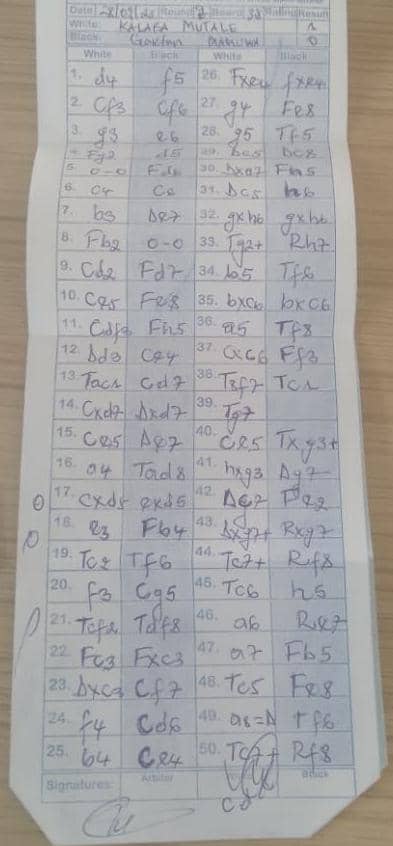 Date 28/09/23 Round 7 Board 38
White: KALABA MUTALE 1
Black: 0
White Black White Black
1. d4 f5 26. Fxe4 fxe4
2. Cf3 Cf6 27. g4 Fe8
3. g3 e6 28. g5 Tf5
4. Fg2 d5 29. Dc5 Dc8
5. 0-0 30. Dxa7 Fh5
6. c4 c6 31. Dc5 h6
7. b3 De7 32. gxh6 gxh6
8. Fb2 0-0 33. Tg2+ Rh7
9. Cd2 Fd7 34. b5 Tf6
10. Ce5 Fe8 35. bxc6 bxc6
11. Cdf3 Fh5 36. a5 Tf8
12. Dd3 Ce4 37. Cxc6 Ff3
13. Tac1 Cd7 38. Tc1
14. Cxd7 Dxd7 39. Tg7
15. Ce5 De7 40. Ce5 Txg3+
16. a4 Tad8 41. hxg3 Dg7
17. cxd5 exd5 42.
18. e3 Fb4 43. Dxg7+ Rxg7
19. Tc2 Tf6 44. Tc7+ Rf8
20. f3 Cg5 45. Tc6 h5
21. Tcf2 Tdf8 46. a6 Re7
22. Fc3 Fxc3 47. a7 Fb5
23. Dxc3 Cf7 48. Tc5 Fe8
24. f4 Cd6 49. a8=D Tf6
25. b4 Ce4 50. Rf8
Signatures: Arbiter Black